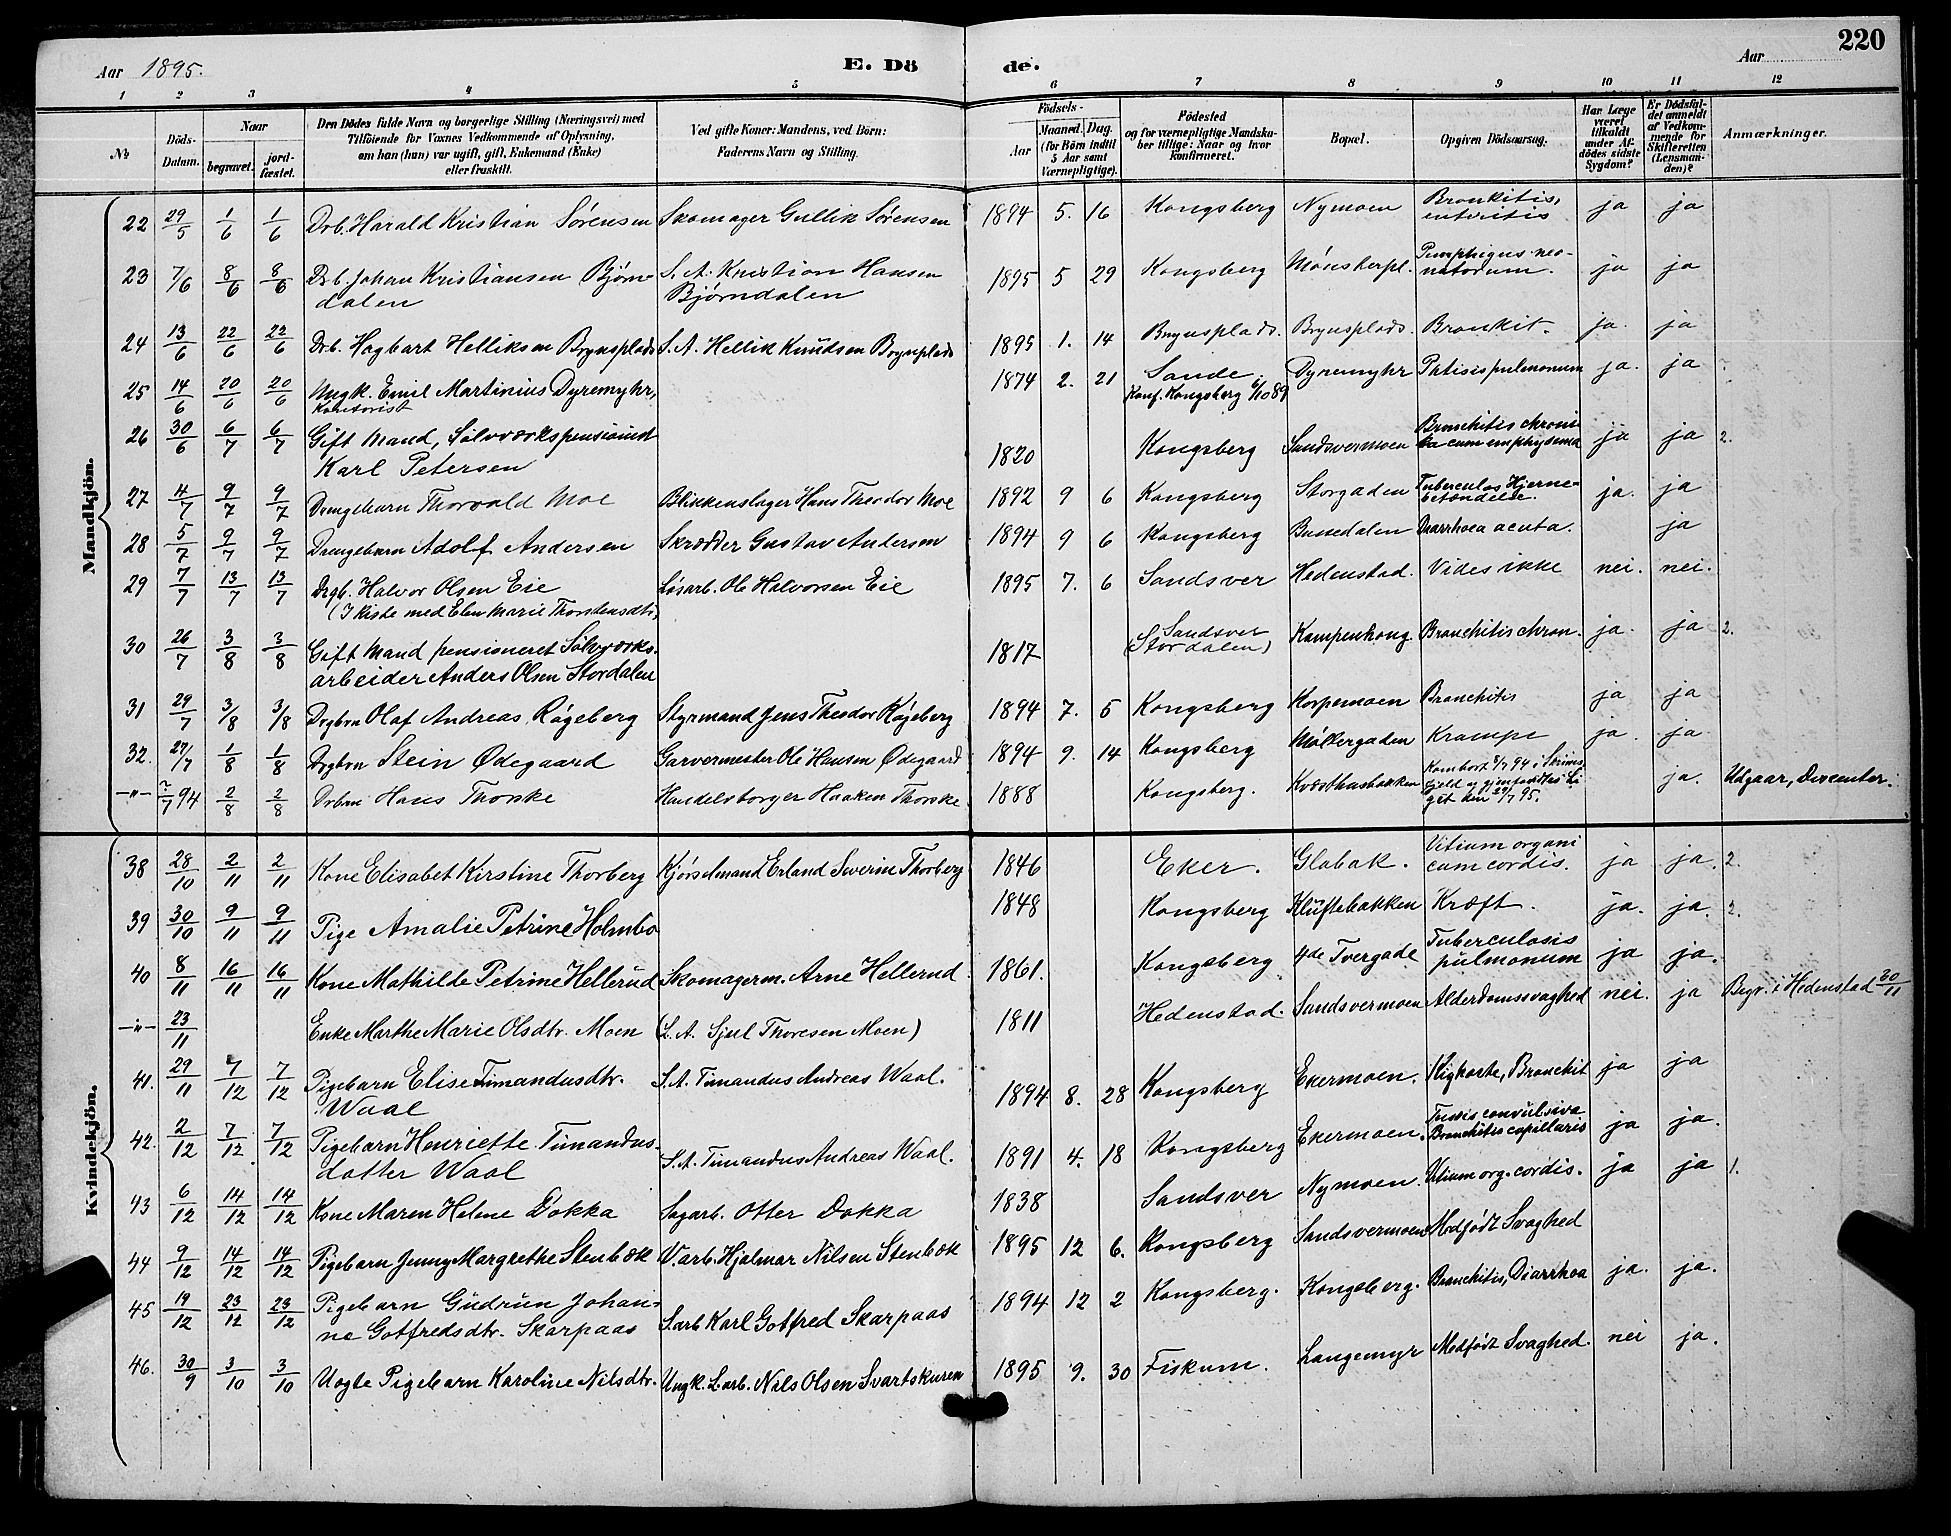 220
Aar 1895. E. Dö de. Aar
1 2 3 4 5 6 7 8 9 10 11 12
№ Döds-Datum. Naar begravet. jord-fæstet. Den Dödes fulde Navn og borgerlige Stilling (Næringsvei) med Tilföiende for Voxnes Vedkommende af Oplysning, om han (hun) var ugift, gift, Enkemand (Enke) eller fraskilt. Ved gifte Koner: Mandens, ved Börn: Faderens Navn og Stilling. Födsels- Aar Maaned. Dag. (for Börn indtil 5 Aar samt Værnepligtige). Födested og for værnepligtige Mandskaber tillige: Naar og hvor konfirmeret. Bopæl. Opgiven Dödsaarsag. Har Læge været tilkaldt under Afdödes sidste Sygdom? Er Dödsfaldet anmeldt af Vedkommende for Skifteretten (Lensmanden)? Anmærkninger.
Mandkjön.
22 29/5 1/6 1/6 Drb. Harald Kristian Sørensen Skomager Gullik Sørensen 1894 5. 16 Kongsberg Nymoen Bronkitis, enteritis ja ja
23 7/6 8/6 8/6 Drb. Johan Kristiansen Bjørndalen S. A. Kristian Hansen Bjørndalen 1895 5 29 Kongsberg Mønsterpl. Pemphigus neonatorum. ja ja
24 13/6 22/6 22/6 Drb. Hagbart Helliksen Brynsplads S. A. Hellik Knudsen Brynplads 1895 1. 14 Brynsplads. Brynsplads. Bronkit. ja. ja
25 14/6 20/6 20/6 Ungk. Emil Martinius Dyremyhr, Kontorist 1874 2. 21 Sande. Konf. Kongsberg 6/10 89 Dyremyhr Phtisis pulmonum ja. ja
26 30/6 6/7 6/7 Gift Mand, Sølvværkspensionist Karl Petersen 1820 Kongsberg Sandsvermoen Bronchitis chronica cum emphysema ja ja 2.
27 4/7 9/7 9/7 Drengebarn Thorvald Moe Blikkenslager Hans Theodor Moe 1892 9 6 Kongsberg Storgaden Tuberculøs Hjernebetændelse. ja. ja
28 5/7 9/7 9/7 Drengebarn Adolf Andersen Skrædder Gustav Andersen 1894 9 6 Kongsberg Bussedalen Diarrhoea acuta. ja
29 7/7 13/7 13/7 Drgb. Halvor Olsen Eie (I Kiste med Elen Marie Thorstensdtr.) Løsarb. Ole Halvorsen Eie 1895 7. 6 Sandsver Hedenstad. Vides ikke nei. nei.
30 26/7 3/8 3/8 Gift Mand pensioneret Sølvværksarbeider Anders Olsen Stordalen 1817 Sandsver (Stordalen) Kampenhaug. Bronchitis chron. ja. ja 2.
31 29/7 3/8 3/8 Drgbrn Olaf Andreas Røgeberg Styrmand Jens Theodor Røgeberg 1894 7. 5 Kongsberg Korpemoen Bronchitis ja ja
32. 27/7 1/8 1/8 Drgbrn Stein Ødegaard Garvermester Ole Hansen Ødegaard 1894 9. 14 Kongsberg Møllergaden Krampe ja. ja
-"- 7/7 94 2/8 2/8 Drbrn Hans Thorske Handelsborger Haaken Thorske. 1888 Kongsberg. Kvæsthusbakken Kom bort 7/7 94 i Skrimsfjeld og gjenfandtes Liget den 29/7 95. ja. Udgaar, December.
Kvindekjön.
38 28/10 2/11 2/11 Kone Elisabet Kirstine Thorberg Kjørselmand Erland Severin Thorberg 1846 Eker. Glabak. Vitium organicum cordis. ja ja. 2.
39 30/10 9/11 9/11 Pige Amalie Petrine Holmbo 1848 Kongsberg Kluftebakken Kræft. ja. ja. 2.
40 8/11 16/11 16/11 Kone Mathilde Petrine Hellerud Skomagerm. Arne Hellerud. 1861. Kongsberg 4de Tvergade Tuberculosis pulmonum ja ja.
-"- 23/11 Enke Marthe Marie Olsdtr. Moen (S. A. Sjul Thoresen Moen) 1811 Hedenstad. Sandsvermoen Alderdomssvaghed nei. ja Begr. i Hedenstad 30/11
41. 29/11 7/12 7/12 Pigebarn Elise Timandusdtr. Waal S. A. Timandus Andreas Waal. 1894 8. 28 Kongsberg Ekermoen. Kighoste, Bronchit ja ja
42. 2/12 7/12 7/12 Pigebarn Henriette Timandusdatter Waal S. A. Timandus Andreas Waal. 1891 4. 18 Kongsberg Ekermoen. Tussis convulsiva Bronchitis capillaris ja ja.
43 6/12 14/12 14/12 Kone Maren Helene Dokka Sagarb. Otter Dokka 1838 Sandsver Nymoen. Vitium org. cordis. ja ja 1.
44 9/12 14/12 14/12 Pigebarn Jenny Margrethe Stenbæk V.arb. Hjalmar Nilsen Stenbæk 1895 12 6. Kongsberg Sandsvermoen Medfødt Svaghed
45 19/12 23/12 23/12 Pigebarn Gudrun Johanne Gotfredsdtr. Skarpaas S.arb Karl Gotfred Skarpaas 1894 12 2 Kongsberg. Kongsberg. Bronchitis, Diarrhoa ja. ja.
46. 30/9 3/10 3/10 Uægte Pigebarn Karoline Nilsdtr. Ungk. L.arb. Nils Olsen Svartskuren 1895 9. 30 Fiskum. Langemyr Medfødt Svaghed. nei ja.